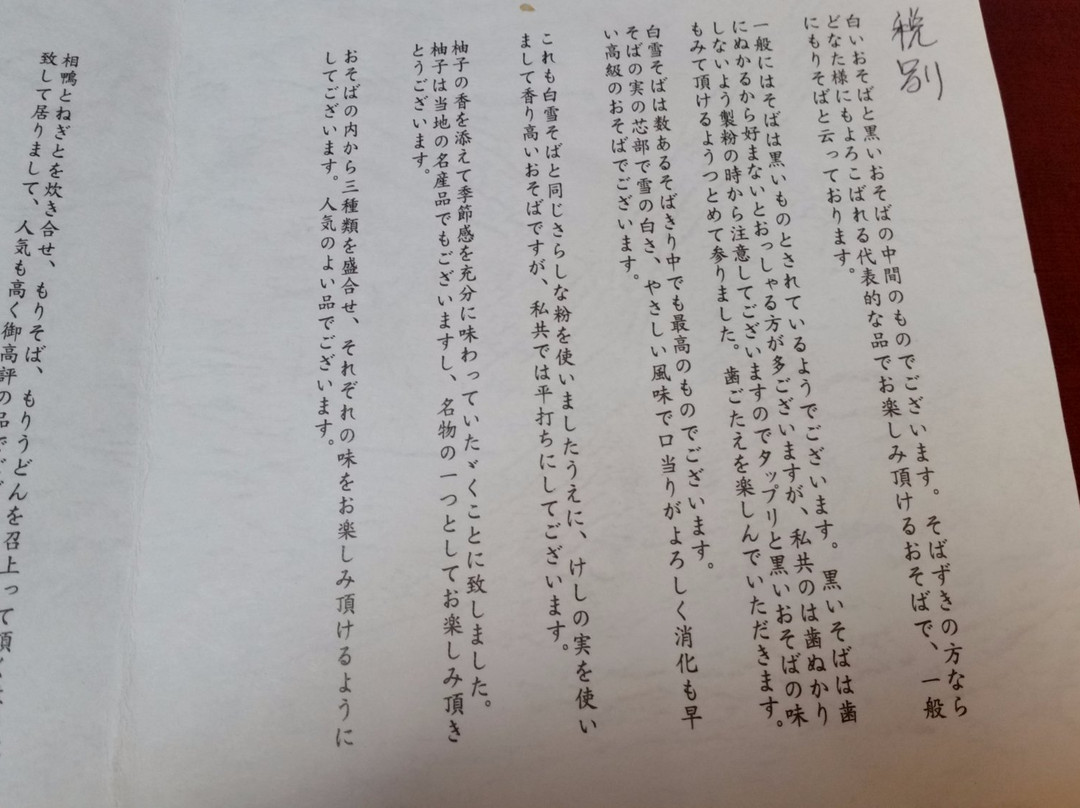 税別
白いおそばと黒いおそばの中間のものでございます。そばずきの方なら
どなた様にもよろこばれる代表的な品でお楽しみ頂けるおそばで、一般
にもりそばと云っております。
一般にはそばは黒いものとされているようでございます。黒いそばは歯
にぬかるから好まないとおっしゃる方が多ございますが、私共のは歯ぬかり
しないよう製粉の時から注意してございますのでタップリと黒いおそばの味
もみて頂けるようつとめて参りました。歯ごたえを楽しんでいただきます。
白雪そばは数あるそばきり中でも最高のものでございます。
そばの実の芯部で雪の白さ、やさしい風味で口当りがよろしく消化も早
い高級のおそばでございます。
これも白雪そばと同じさらしな粉を使いましたうえに、けしの実を使い
まして香り高いおそばですが、私共では平打ちにしてございます。
柚子の香を添えて季節感を充分に味わっていたゞくことに致しました。
柚子は当地の名産品でもございますし、名物の一つとしてお楽しみ頂き
とうございます。
おそばの内から三種類を盛合せ、それぞれの味をお楽しみ頂けるように
してございます。人気のよい品でございます。
相鴨とねぎとを炊き合せ、もりそば、もりうどんを召上って頂
致して居りまして、人気も高く御高評の品で